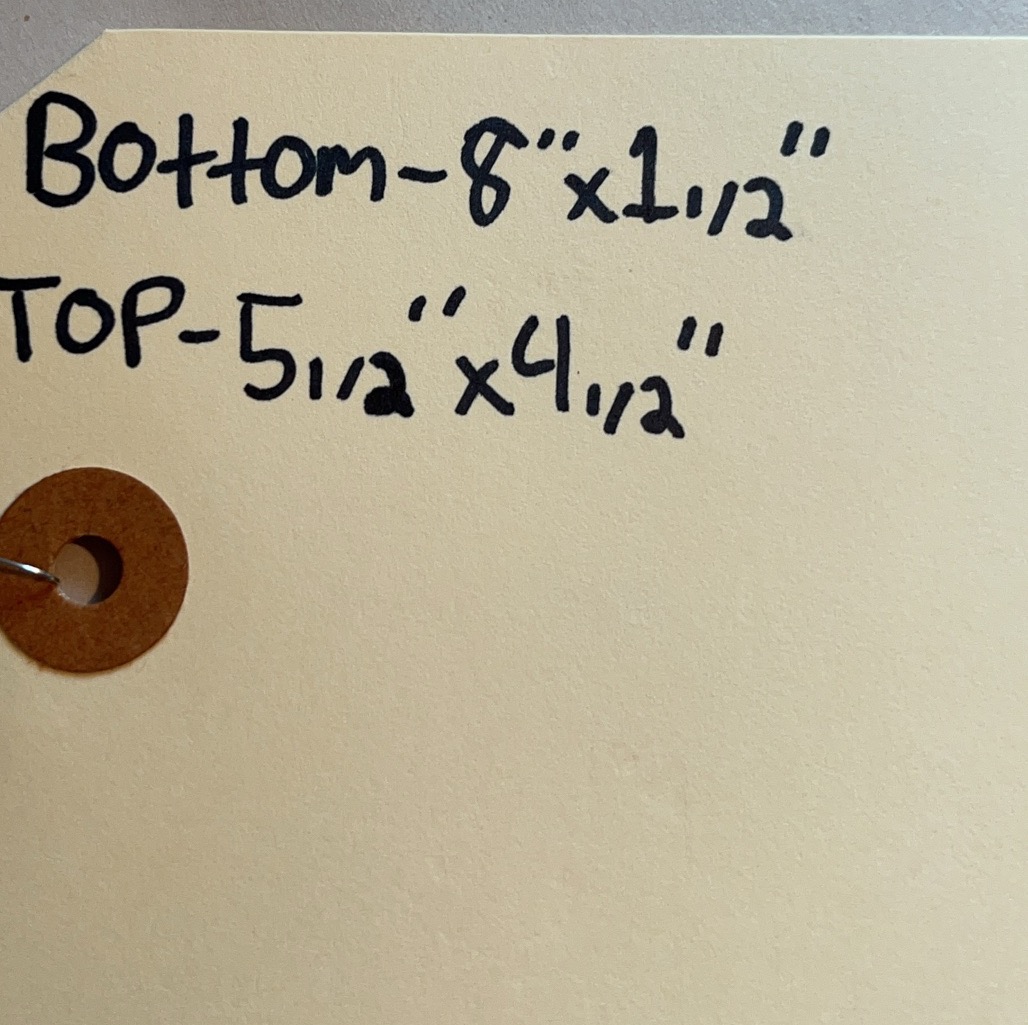 Bottom-8"x1 1/2"
TOP-5 1/2"x4 1/2"